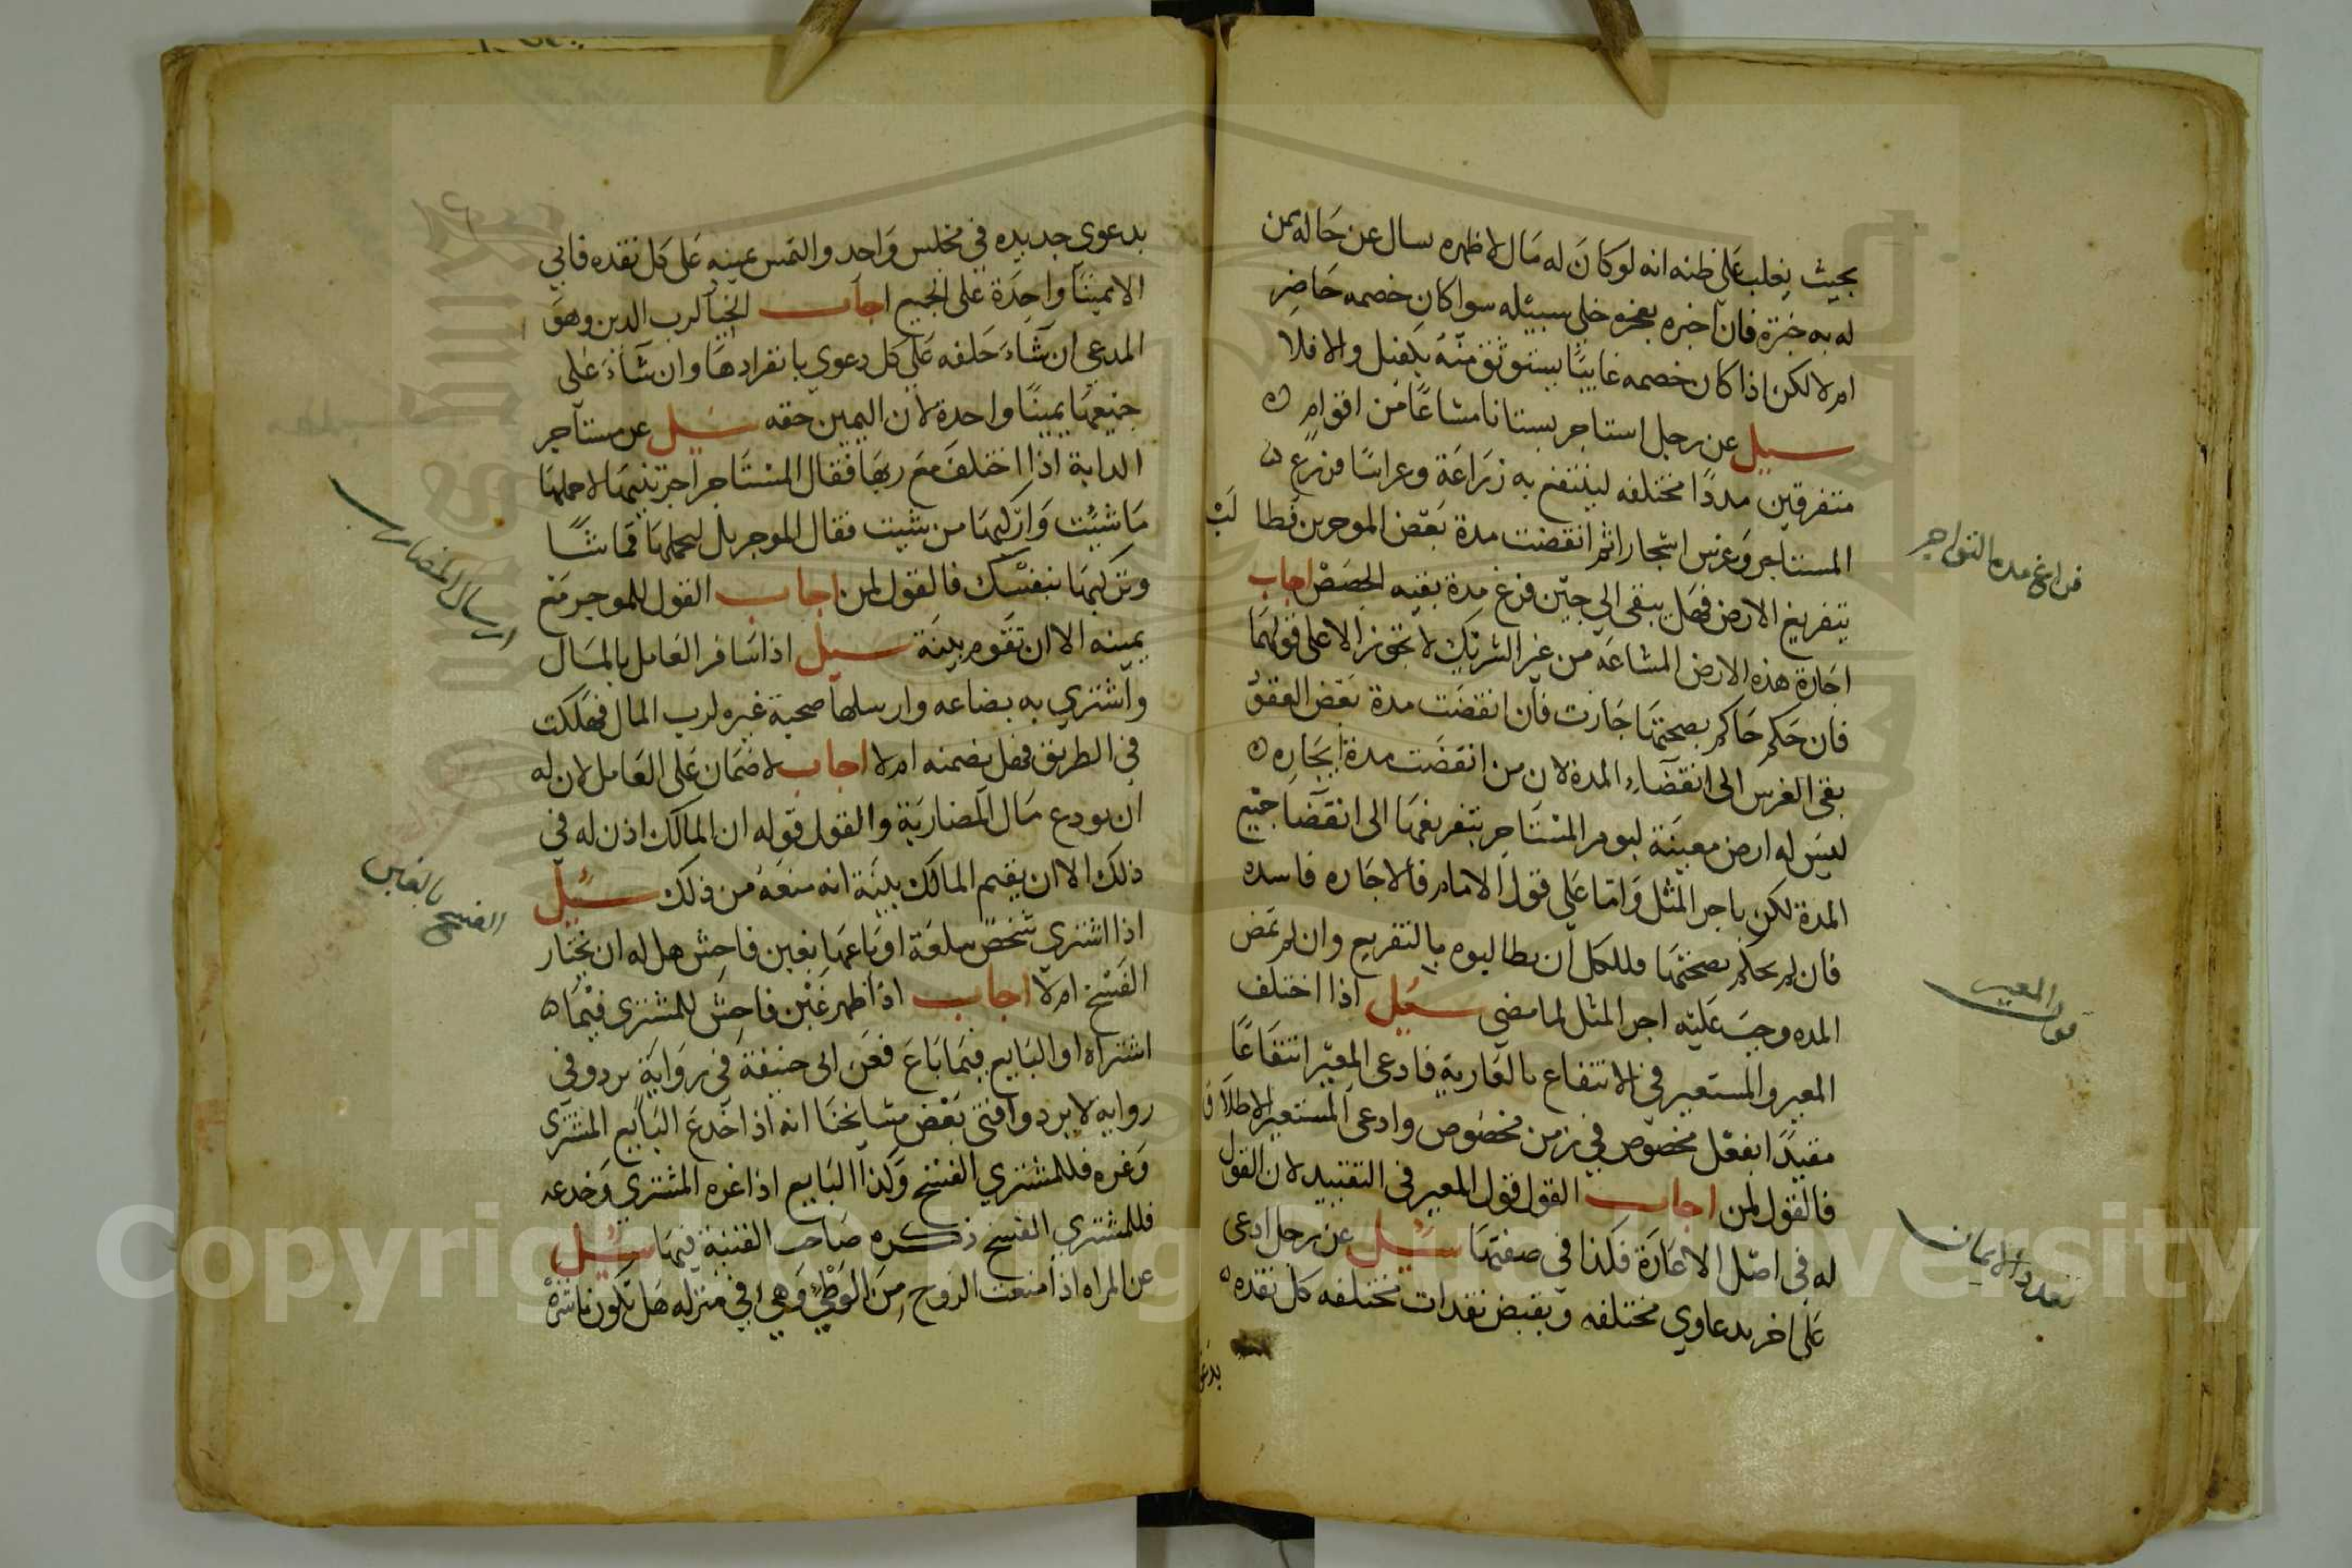 بحيث يغلب على ظنه انه لو كان له مال لاظهره سال عن حاله من
له به خبرة فان اخبره بعجزه خلى سبيله سوا كان خصمه حاضر
ام لا لكن اذا كان خصمه غايبا يستوثق منه بكفيل والا فلا
سيل عن رجل استاجر بستانا مشاعا من اقوام
متفرقين مددا مختلفه لينتفع به زراعة وغراسا فزرع
المستاجر وغرس اشجارا ثم انقضت مدة بعض الموجرين فطالب
بتفريغ الارض فهل يبقى الى حين فرغ مدة بقيه الحصص اجاب
اجارة هذه الارض المشاعه من غير الشريك لا تجوز الا على قولهما
فان حكم حاكم بصحتها جازت فان انقضت مدة بعض العقود
بقى الغرس الى انقضاء المدة لان من انقضت مدة ايجاره
ليس له ارض معينة ليومر المستاجر بتفريغها الى انقضا جميع
المدة لكن باجر المثل واما على قول الامام فالاجاره فاسده
فان لم يحكم بصحتها فللكل ان يطالبوه بالتفريع وان لم تمض
المده وجب عليه اجر المثل لما مضى سيل اذا اختلف
المعير والمستعير في الانتفاع بالعارية فادعى المعير انتفاعا
مقيدا بفعل مخصوص في زمن مخصوص وادعى المستعير الاطلاق
فالقول لمن اجاب القول قول المعير في التقييد لان القول
له في اصل الاعارة فكذا في صفتها سيل عن رجل ادعى
على اخر بدعاوي مختلفه وبقبض نقدات مختلفه كل نقده
بدعوى
فراغ مدة التواجر
قول المعير
تعدد الايمان
بدعوي جديده في مجلس واحد والتمس يمينه على كل نقده فابي
الا يمينا واحدة على الجميع اجاب الخيار لرب الدين وهو
المدعي ان شاء حلفه على كل دعوي بانفرادها وان شاء على
جميعها يمينا واحدة لان اليمين حقه سيل عن مستاجر
الدابة اذا اختلف مع ربها فقال المستاجر اجرتنيها لاحملها
ما شيت واركبها من شيت فقال الموجر بل لتحملها قماشا
وتركبها بنفسك فالقول لمن اجاب القول للموجر مع
يمينه الا ان تقوم بينة سيل اذا سافر العامل بالمال
واشتري به بضاعه وارسلها صحبة غيره لرب المال فهلكت
في الطريق فهل يضمنه ام لا اجاب لا ضمان على العامل لان له
ان يودع مال المضاربة والقول قوله ان المالك اذن له في
ذلك الا ان يقيم المالك بينة انه منعه من ذلك سيل
اذا اشتري شخص سلعة او باعها بغبن فاحش هل له ان يختار
الفسخ ام لا اجاب اذا ظهر غبن فاحش للمشتري فيما
اشتراه او البايع فيما باع فعن ابي حنيفة في رواية يرد وفي
روايه لا يرد وافتى بعض مشايخنا انه اذا خدع البايع المشتري
وغره فللمشتري الفسخ وكذا البايع اذا غره المشتري وخدعه
فللمشتري الفسخ ذكره صاحب القنية فيها سيل
عن المراه اذا منعت الزوج من الوطي وهي في منزله هل تكون ناشزة
ارسال المضارب
الفسخ بالغبن
Copyright © King Saud University